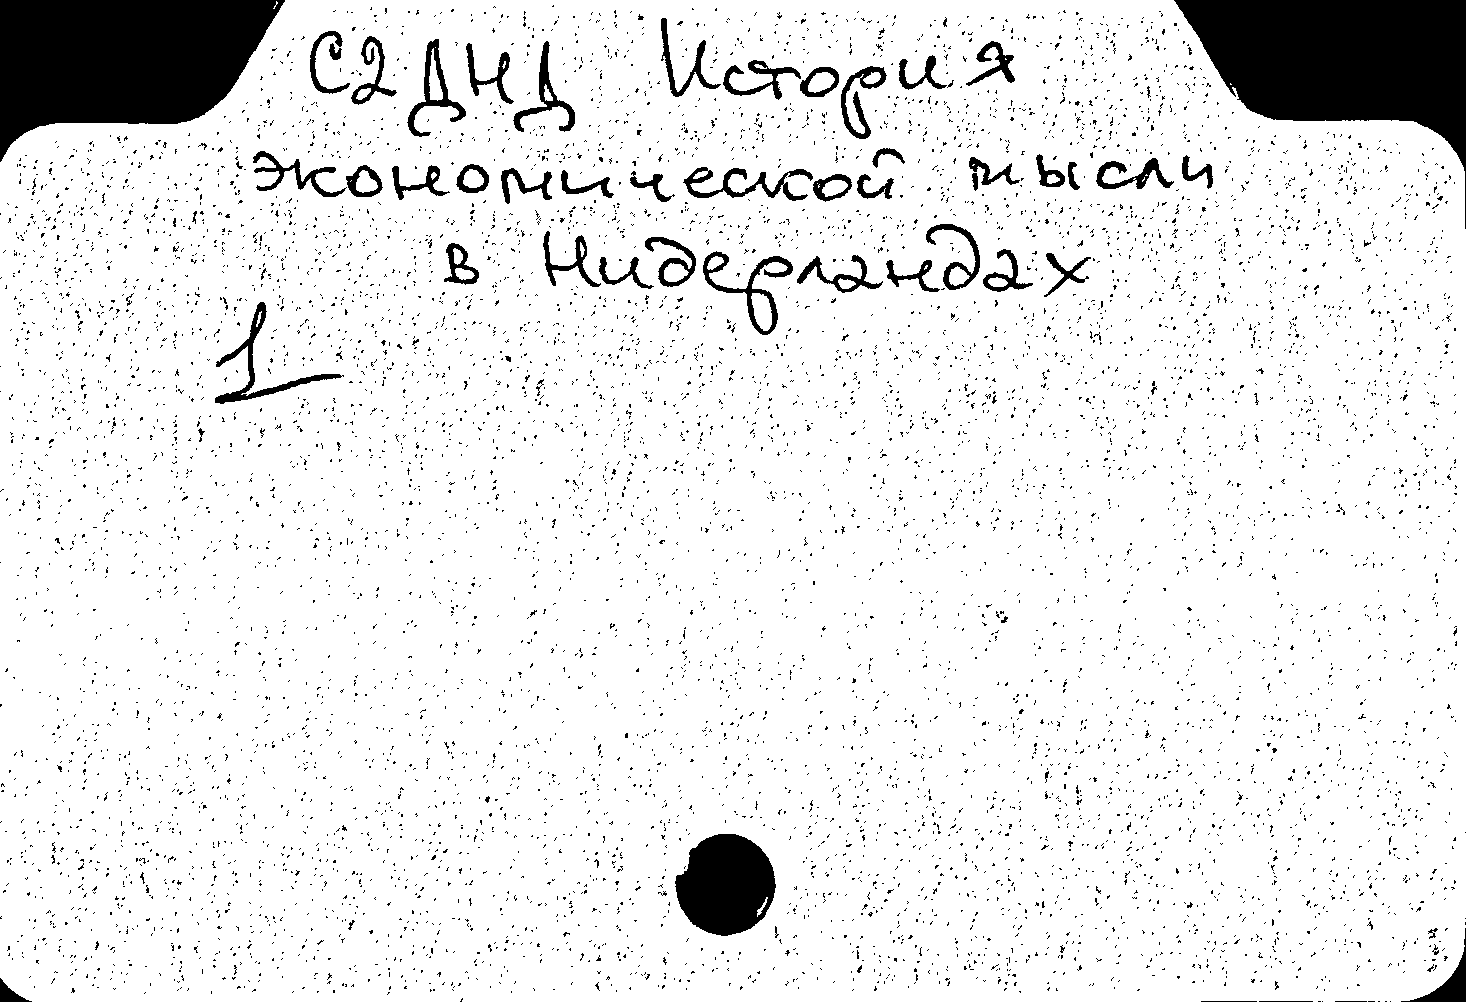 С2ДНД История
экономической мысли
в Нидерландах
1